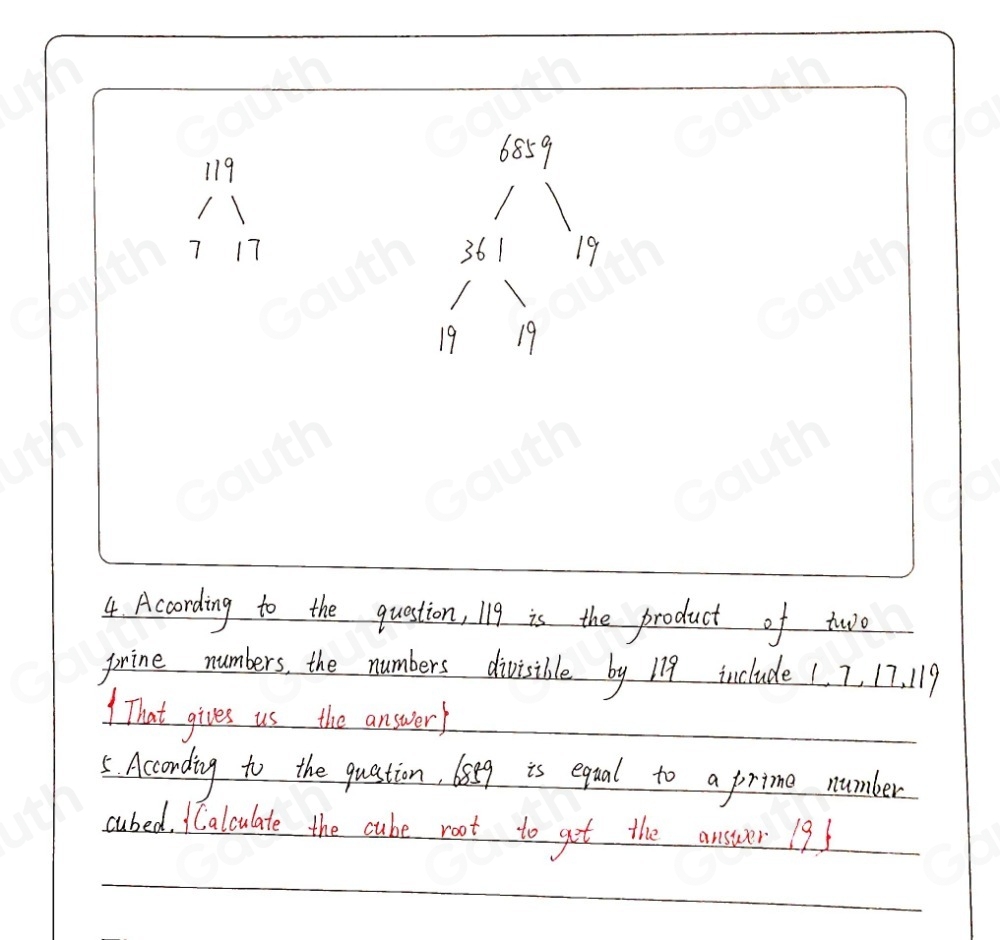 119
7 17
6859
361 19
19 19
4. According to the question, 119 is the product of two
prine numbers, the numbers divisible by 119 include 1, 7, 17, 119
{That gives us the answer}
5. According to the question, 6859 is equal to a prime number
cubed. {Calculate the cube root to get the answer 19}
Gauth